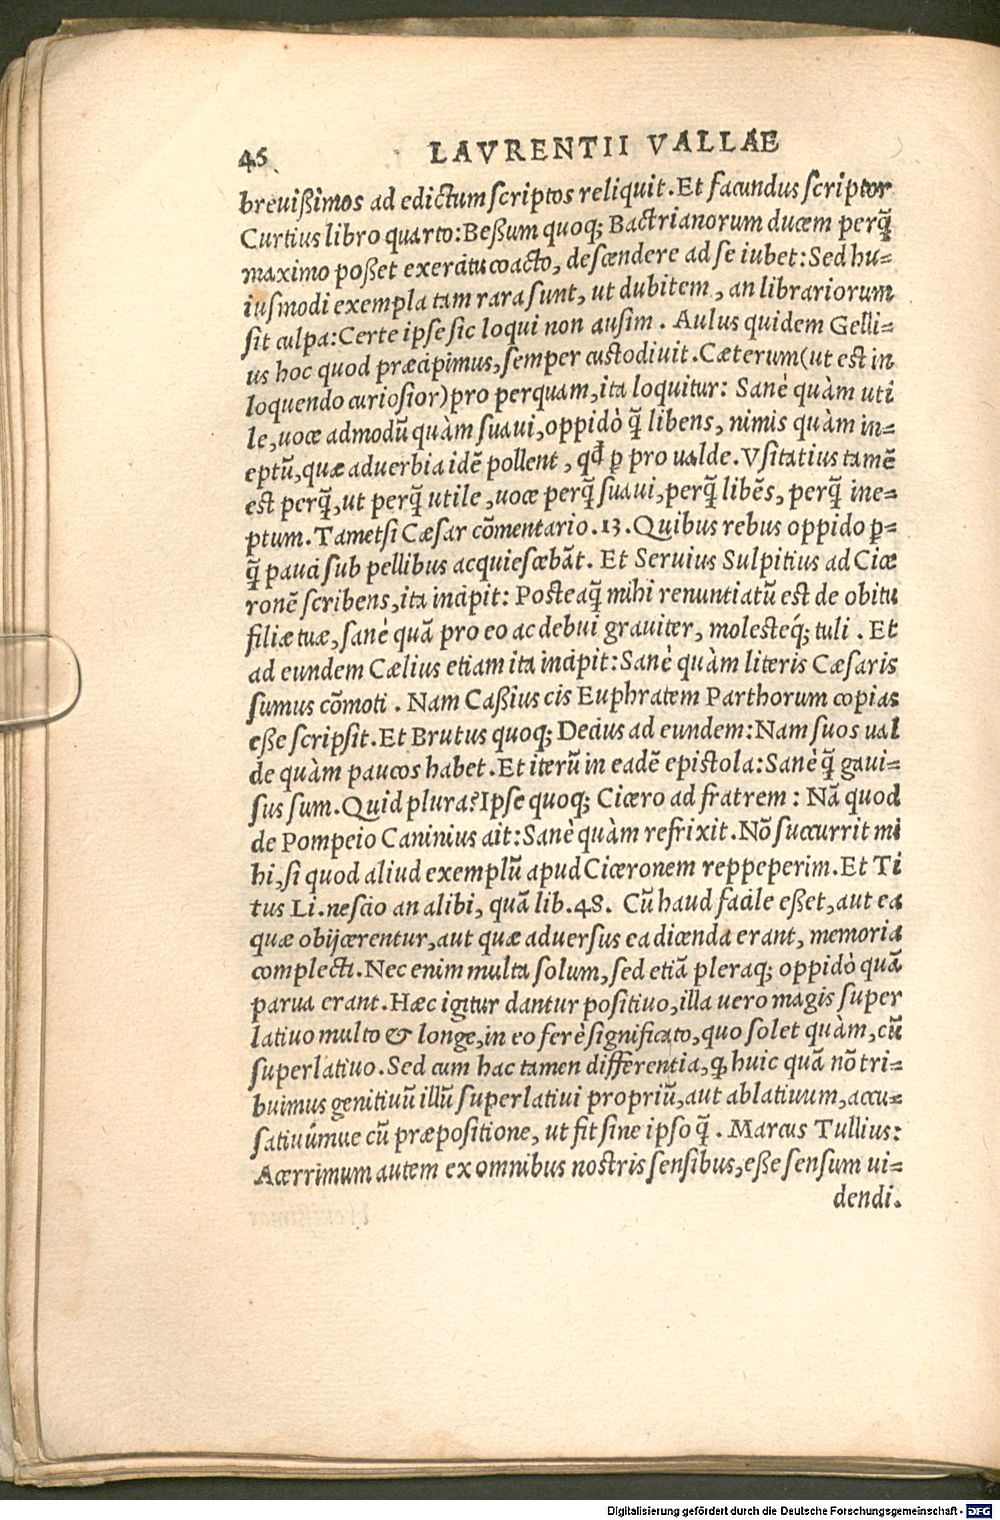 46
LAVRENTII VALLAE
breuißimos ad edictum scriptos reliquit. Et facundus scriptor
Curtius libro quarto: Beßum quoq; Bactrianorum ducem perq̃
maximo poßet exercitu coacto, descendere ad se iubet: Sed hu=
iusmodi exempla tam rara sunt, ut dubitem, an librariorum
sit culpa: Certe ipse sic loqui non ausim. Aulus quidem Gelli=
us hoc quod præcipimus, semper custodiuit. Cæterum (ut est in
loquendo curiosior) pro perquam, ita loquitur: Sanè quàm uti
le, uoce admodũ quàm suaui, oppidò q̃ libens, nimis quàm in=
eptũ, quæ aduerbia idẽ pollent, qđ ꝑ pro ualde. Vsitatius tamẽ
est perq̃, ut perq̃ utile, uoce perq̃ suaui, perq̃ libẽs, perq̃ ine=
ptum. Tametsi Cæsar cõmentario. 13. Quibus rebus oppido ꝑ=
q̃ pauci sub pellibus acquiescebãt. Et Seruius Sulpitius ad Cice
ronẽ scribens, ita incipit: Posteaq̃ mihi renuntiatũ est de obitu
filiæ tuæ, sanè quã pro eo ac debui grauiter, molesteq́; tuli. Et
ad eundem Cælius etiam ita incipit: Sanè quàm literis Cæsaris
sumus cõmoti. Nam Caßius cis Euphratem Parthorum copias
eße scripsit. Et Brutus quoq; Decius ad eundem: Nam suos ual
de quàm paucos habet. Et iterũ in eadẽ epistola: Sanè q̃ gaui=
sus sum. Quid plura? Ipse quoq; Cicero ad fratrem: Nã quod
de Pompeio Caninius ait: Sanè quàm refrixit. Nõ succurrit mi
hi, si quod aliud exemplũ apud Ciceronem reppeperim. Et Ti
tus Li. nescio an alibi, quã lib. 48. Cũ haud facile eßet, aut ea
quæ obijcerentur, aut quæ aduersus ea dicenda erant, memoria
complecti. Nec enim multa solum, sed etiã pleraq; oppidò quã
parua erant. Hæc igitur dantur positiuo, illa uero magis super
latiuo multo & longe, in eo ferè significato, quo solet quàm, cũ
superlatiuo. Sed cum hac tamen differentia, ꝙ huic quã nõ tri=
buimus genitiuũ illũ superlatiui propriũ, aut ablatiuum, accu=
satiuúmue cũ præpositione, ut fit sine ipso q̃. Marcus Tullius:
Acerrimum autem ex omnibus nostris sensibus, eße sensum ui=
dendi.
Digitalisierung gefördert durch die Deutsche Forschungsgemeinschaft - DFG